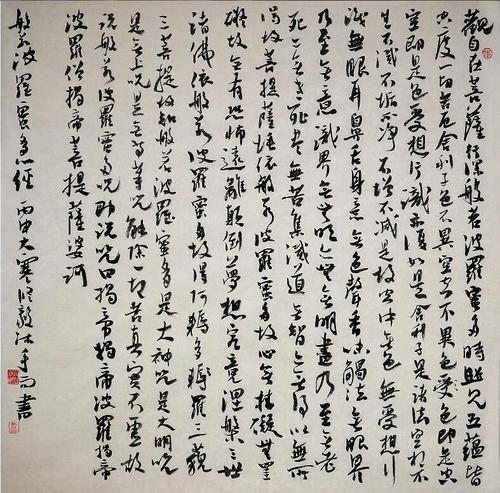 觀自在菩薩行深般若波羅蜜多時照見五蘊皆
空度一切苦厄舍利子色不異空空不異色色即是空
空即是色受想行識亦復如是舍利子是諸法空相不
生不滅不垢不淨不增不減是故空中無色無受想行
識無眼耳鼻舌身意無色聲香味觸法無眼界
乃至無意識界無無明亦無無明盡乃至無老
死亦無老死盡無苦集滅道無智亦無得以無所
得故菩提薩埵依般若波羅蜜多故心無掛礙無罣
礙故無有恐怖遠離顛倒夢想究竟涅槃三世
諸佛依般若波羅蜜多故得阿耨多羅三藐
三菩提故知般若波羅蜜多是大神咒是大明咒
是無上咒是無等等咒能除一切苦真實不虛故
說般若波羅蜜多咒即說咒曰揭帝揭帝波羅揭帝
波羅僧揭帝菩提薩婆訶
般若波羅蜜多心經 丙申大寒 沐手而書